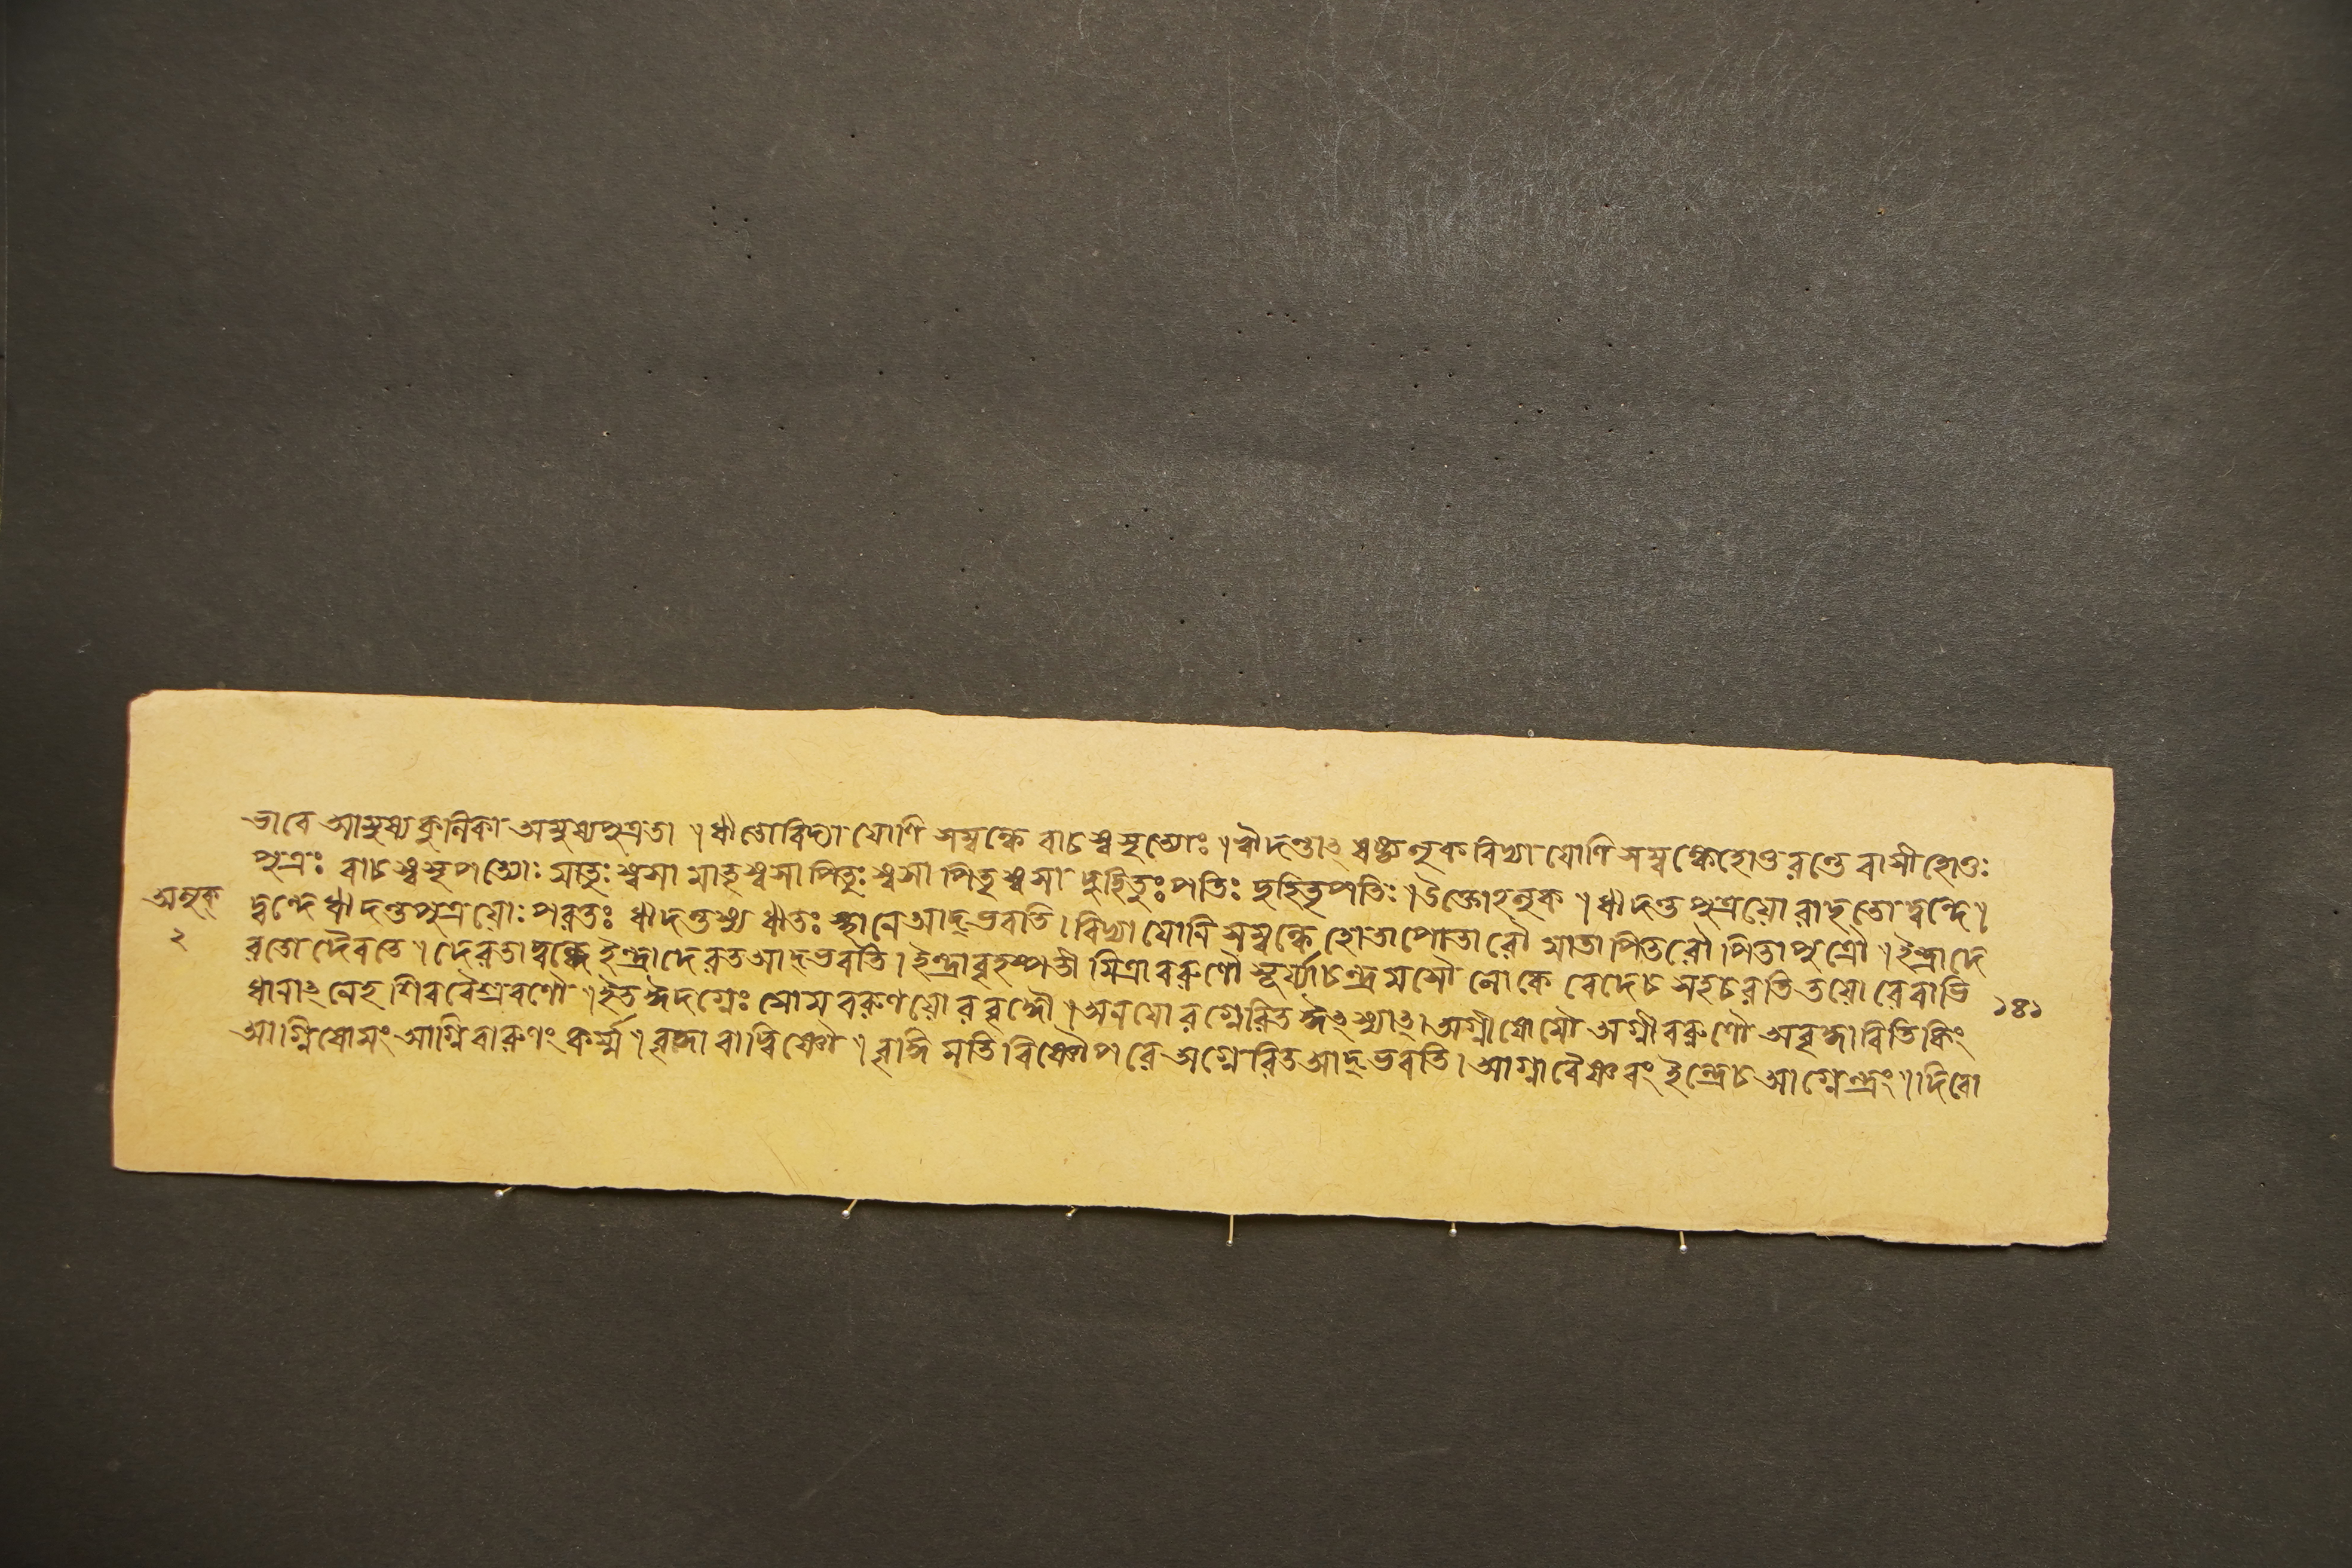 ভাবে আমুষ্যকুলিকা অমুষ্যপুত্রতা ॥ ষ্ঠীণ্ডোবিদ্যাযোণি সম্বন্ধে বাচস্বসৃত্যোঃ ॥ ঋদন্তাৎ ষষ্ঠ্যলুক বিদ্যাযোণি সম্বন্ধেহোতুরন্তে বাসীহোতুঃ
পুত্রঃ বাচস্বসৃপত্যোঃ মাতুঃস্বসা মাতৃস্বসা পিতুঃস্বসা পিতৃস্বসা দুহিতুঃপতিঃ দুহিতৃপতিঃ ॥ উক্তোঽলুক ॥ ঋদন্তপুত্রয়োরাদৃতো দ্বন্দে ॥
দ্বন্দে ঋদন্তপুত্রয়োঃ পরতঃ ঋদন্তস্য ঋতঃ স্থানে আদ্ভবতি । বিদ্যাযোনি সম্বন্ধে হোতাপোতারৌ মাতাপিতরৌ পিতাপুত্রৌ ॥ ইন্দ্রাদে
বতো দৈবতে ॥ দেবতাদ্বন্দ্বে ইন্দ্রাদেবত আদ্ভবতি । ইন্দ্রাবৃহস্পতী মিত্রাবরুণৌ সূর্য্যাচন্দ্রমসৌ লোকে বেদেচ সহচরতি তয়োরেবাভি
ধানাৎ নেহ শিববৈশ্রবণৌ ॥ ইত ঈদগ্নেঃ ষোমবরুণয়োরবৃদ্ধৌ । অনযোরগ্নেরিত ঈৎস্যাৎ । অগ্নীষোমৌ অগ্নীবরুণৌ অবৃদ্ধাবিতিকিং
আগ্নিষোমং আগ্নিবারুণং কর্ম্ম ॥ বৃদ্ধাবাদ্বিষ্ণৌ ॥ বৃদ্ধিমতি বিষ্ণৌপরে অগ্নেরিত আদ্ভবতি । আগ্নাবৈষ্ণবং ইন্দ্রেচ আগ্নেন্দ্রং ॥ দিবো
অলুক্
২
১৪১